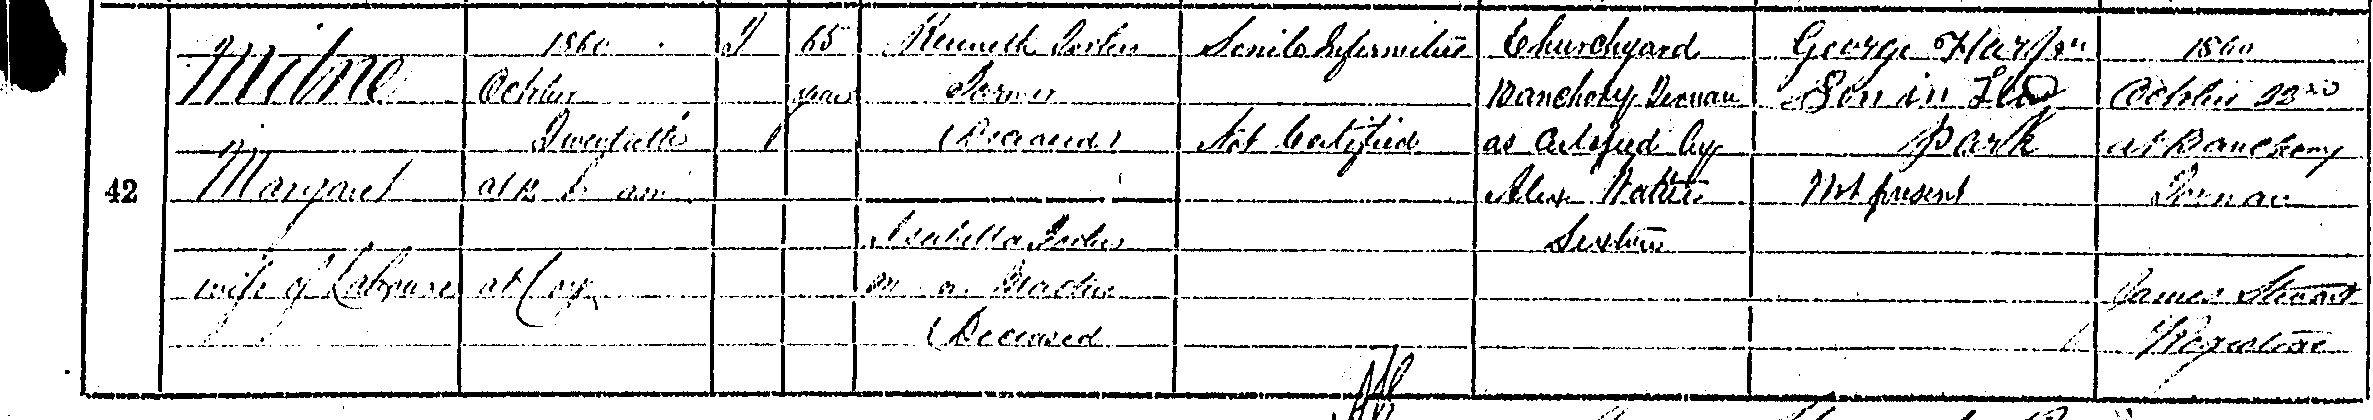 42
Milne
Margaret
wife of Labourer
1860
October
Twentieth
at
at
F
65
years
Kenneth
Farmer
(Deceased)
Isabella
(Deceased
Senile Infirmities
Not Certified
Churchyard
Banchory Ternan
as Certified by
Alex
Sexton
George Harper
Son in Law
Park
Not present
1860
October 22nd
at Banchory
Ternan
James Stuart
Registrar